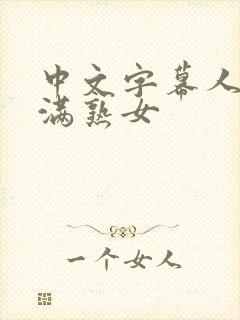 中文字幕人
满熟女
一个女人